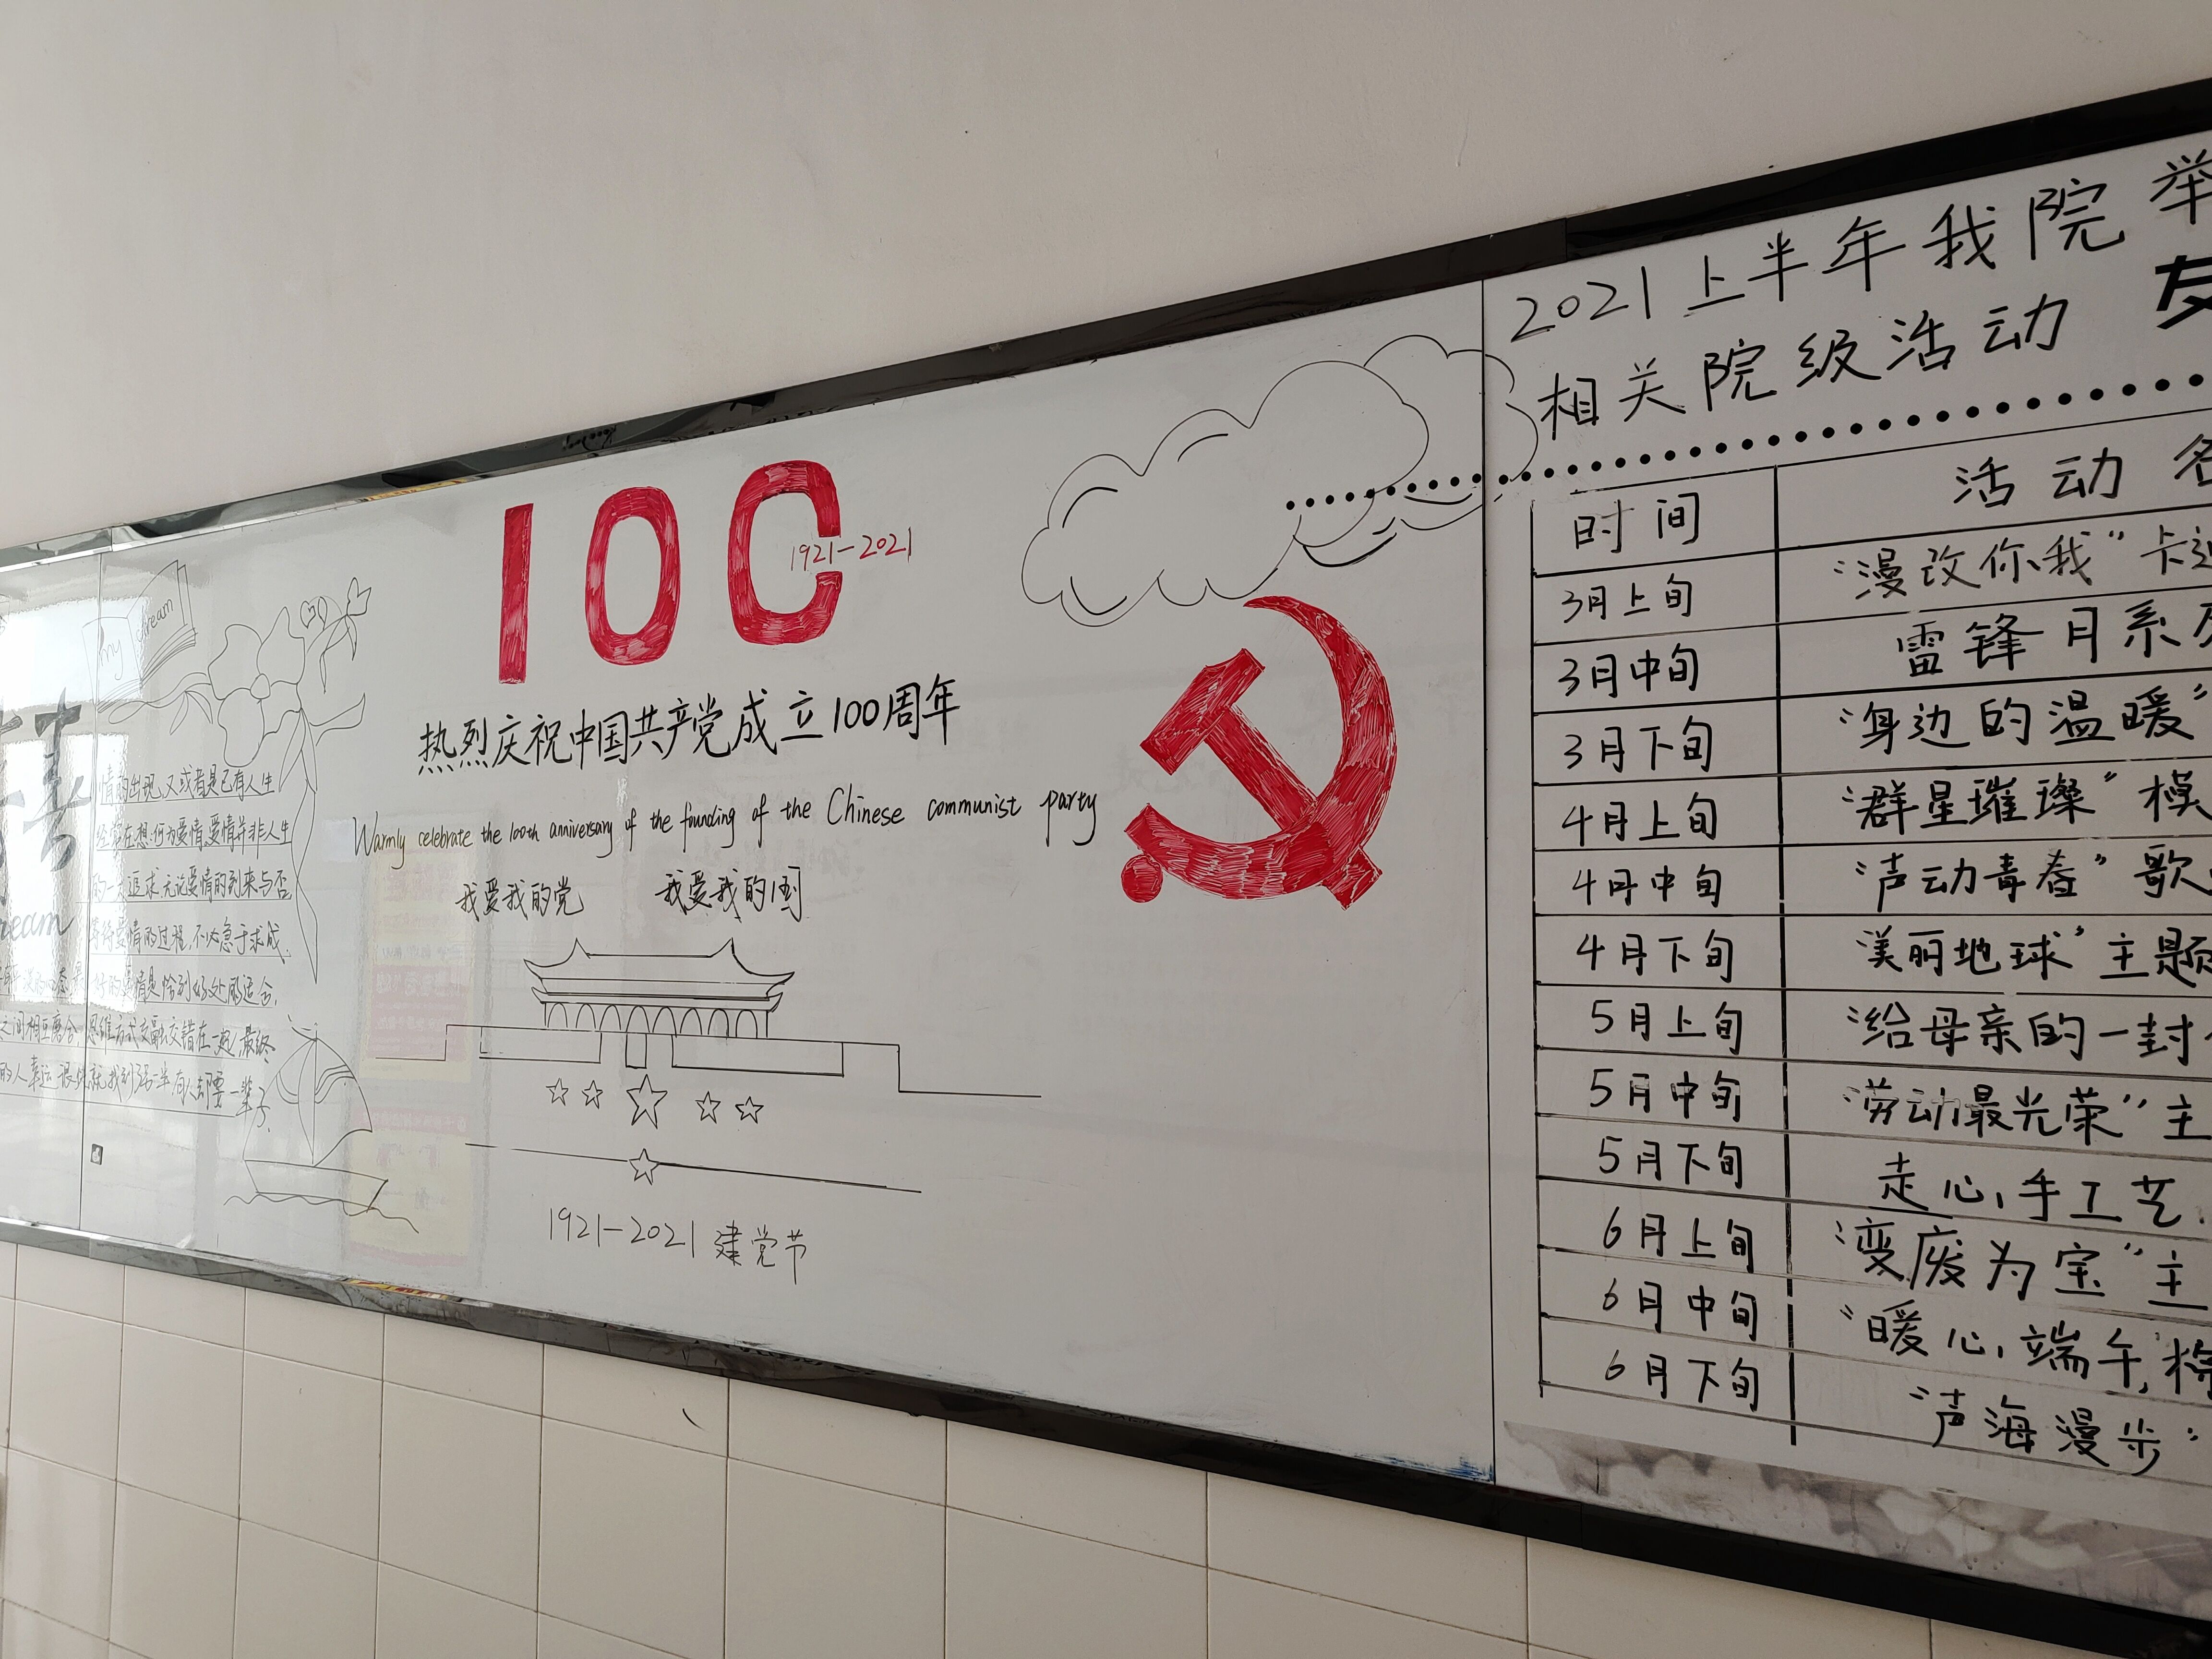 my dream
情的出现,又或者是已有人生
经常在想,何为爱情,爱情并非人生
的一大追求,无论爱情的到来与否,
等待爱情的过程,不必急于求成,
好的爱情是恰到好处的适合,
之间相互磨合,思维方式交融交错在一起,最终
100
1921-2021
热烈庆祝中国共产党成立100周年
Warmly celebrate the 100th anniversary of the founding of the Chinese communist party
我爱我的党 我爱我的国
1921-2021 建党节
2021上半年我院举
相关院级活动
时间 活动名
3月上旬 “漫改你我”卡
3月中旬 雷锋月系
3月下旬 “身边的温暖”
4月上旬 “群星璀璨”模
4月中旬 “声动青春”歌
4月下旬 “美丽地球”主题
5月上旬 “给母亲的一封
5月中旬 “劳动最光荣”主
5月下旬 走心,手工艺
6月上旬 “变废为宝”主
6月中旬 “暖心,端午,
6月下旬 “声海漫步”